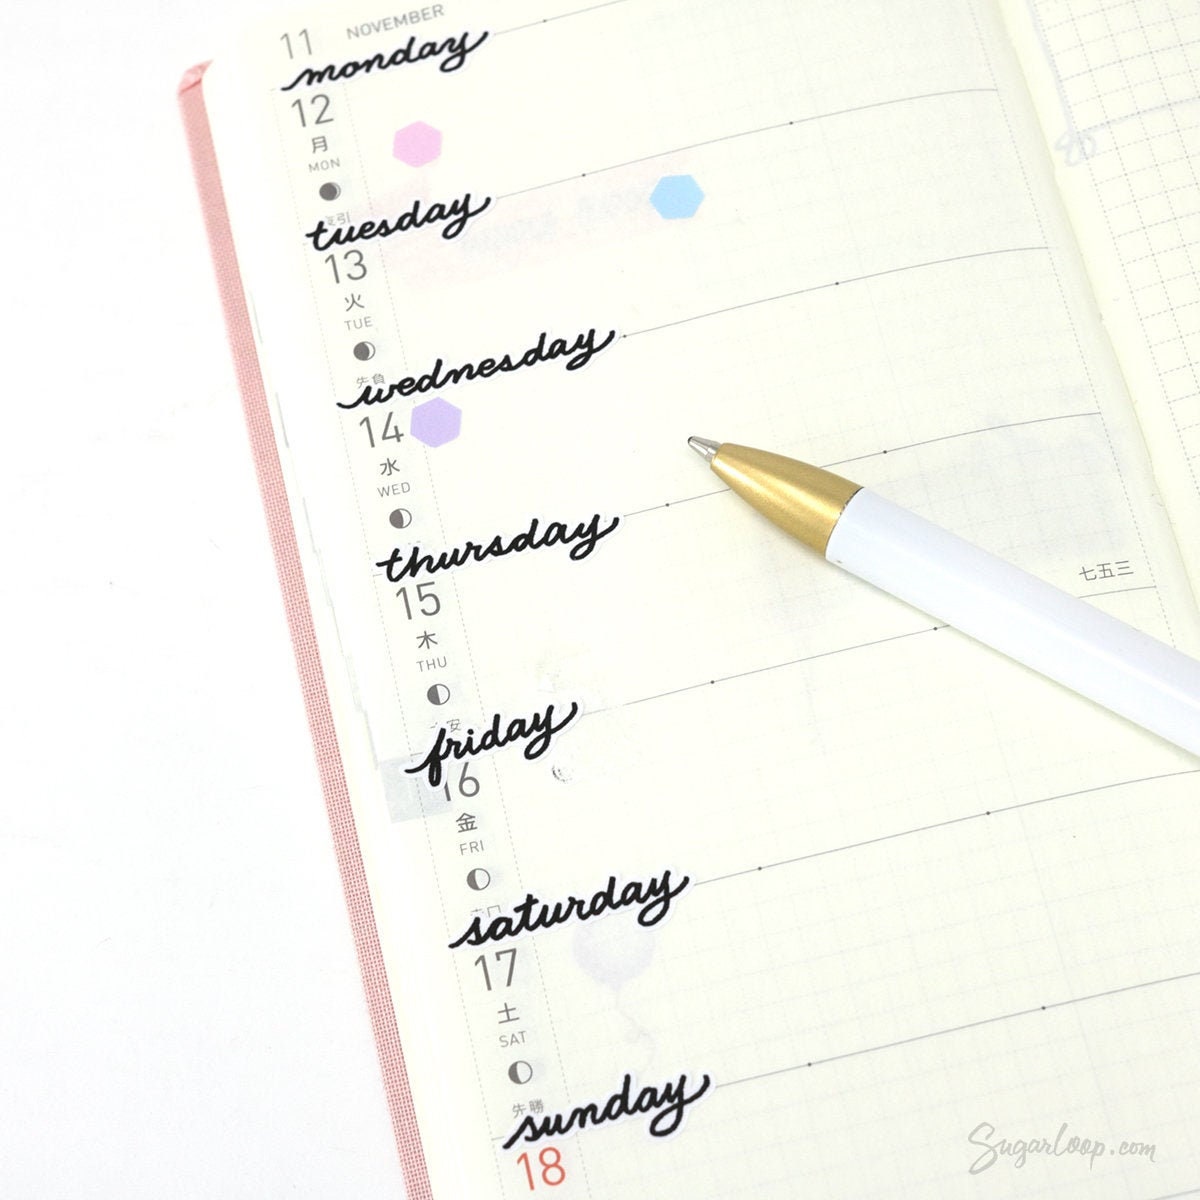 11 NOVEMBER
monday
12
月
MON
tuesday
13
火
TUE
先負
wednesday
14
水
WED
thursday
七五三
15
木
THU
friday
16
金
FRI
saturday
17
土
SAT
先勝
sunday
18
Sugarloop.com